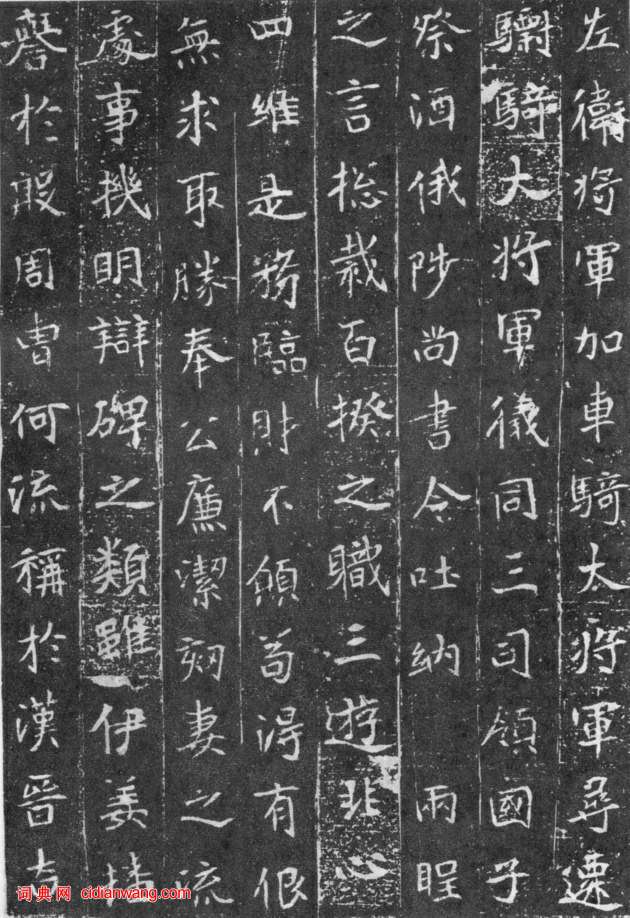 左衛將軍加車騎太將軍尋遷
驃騎大將軍儀同三司領國子
祭酒俄陟尚書令吐納 兩
之言揔裁百揆之職三遊非心
四維是務臨財不傾苟得有佷
無求取勝奉公廉潔剱妻之流
處事機明辯碑之類雖伊姜
譽於殷周曺何流稱於漢晉
词典网 cidianwang.com